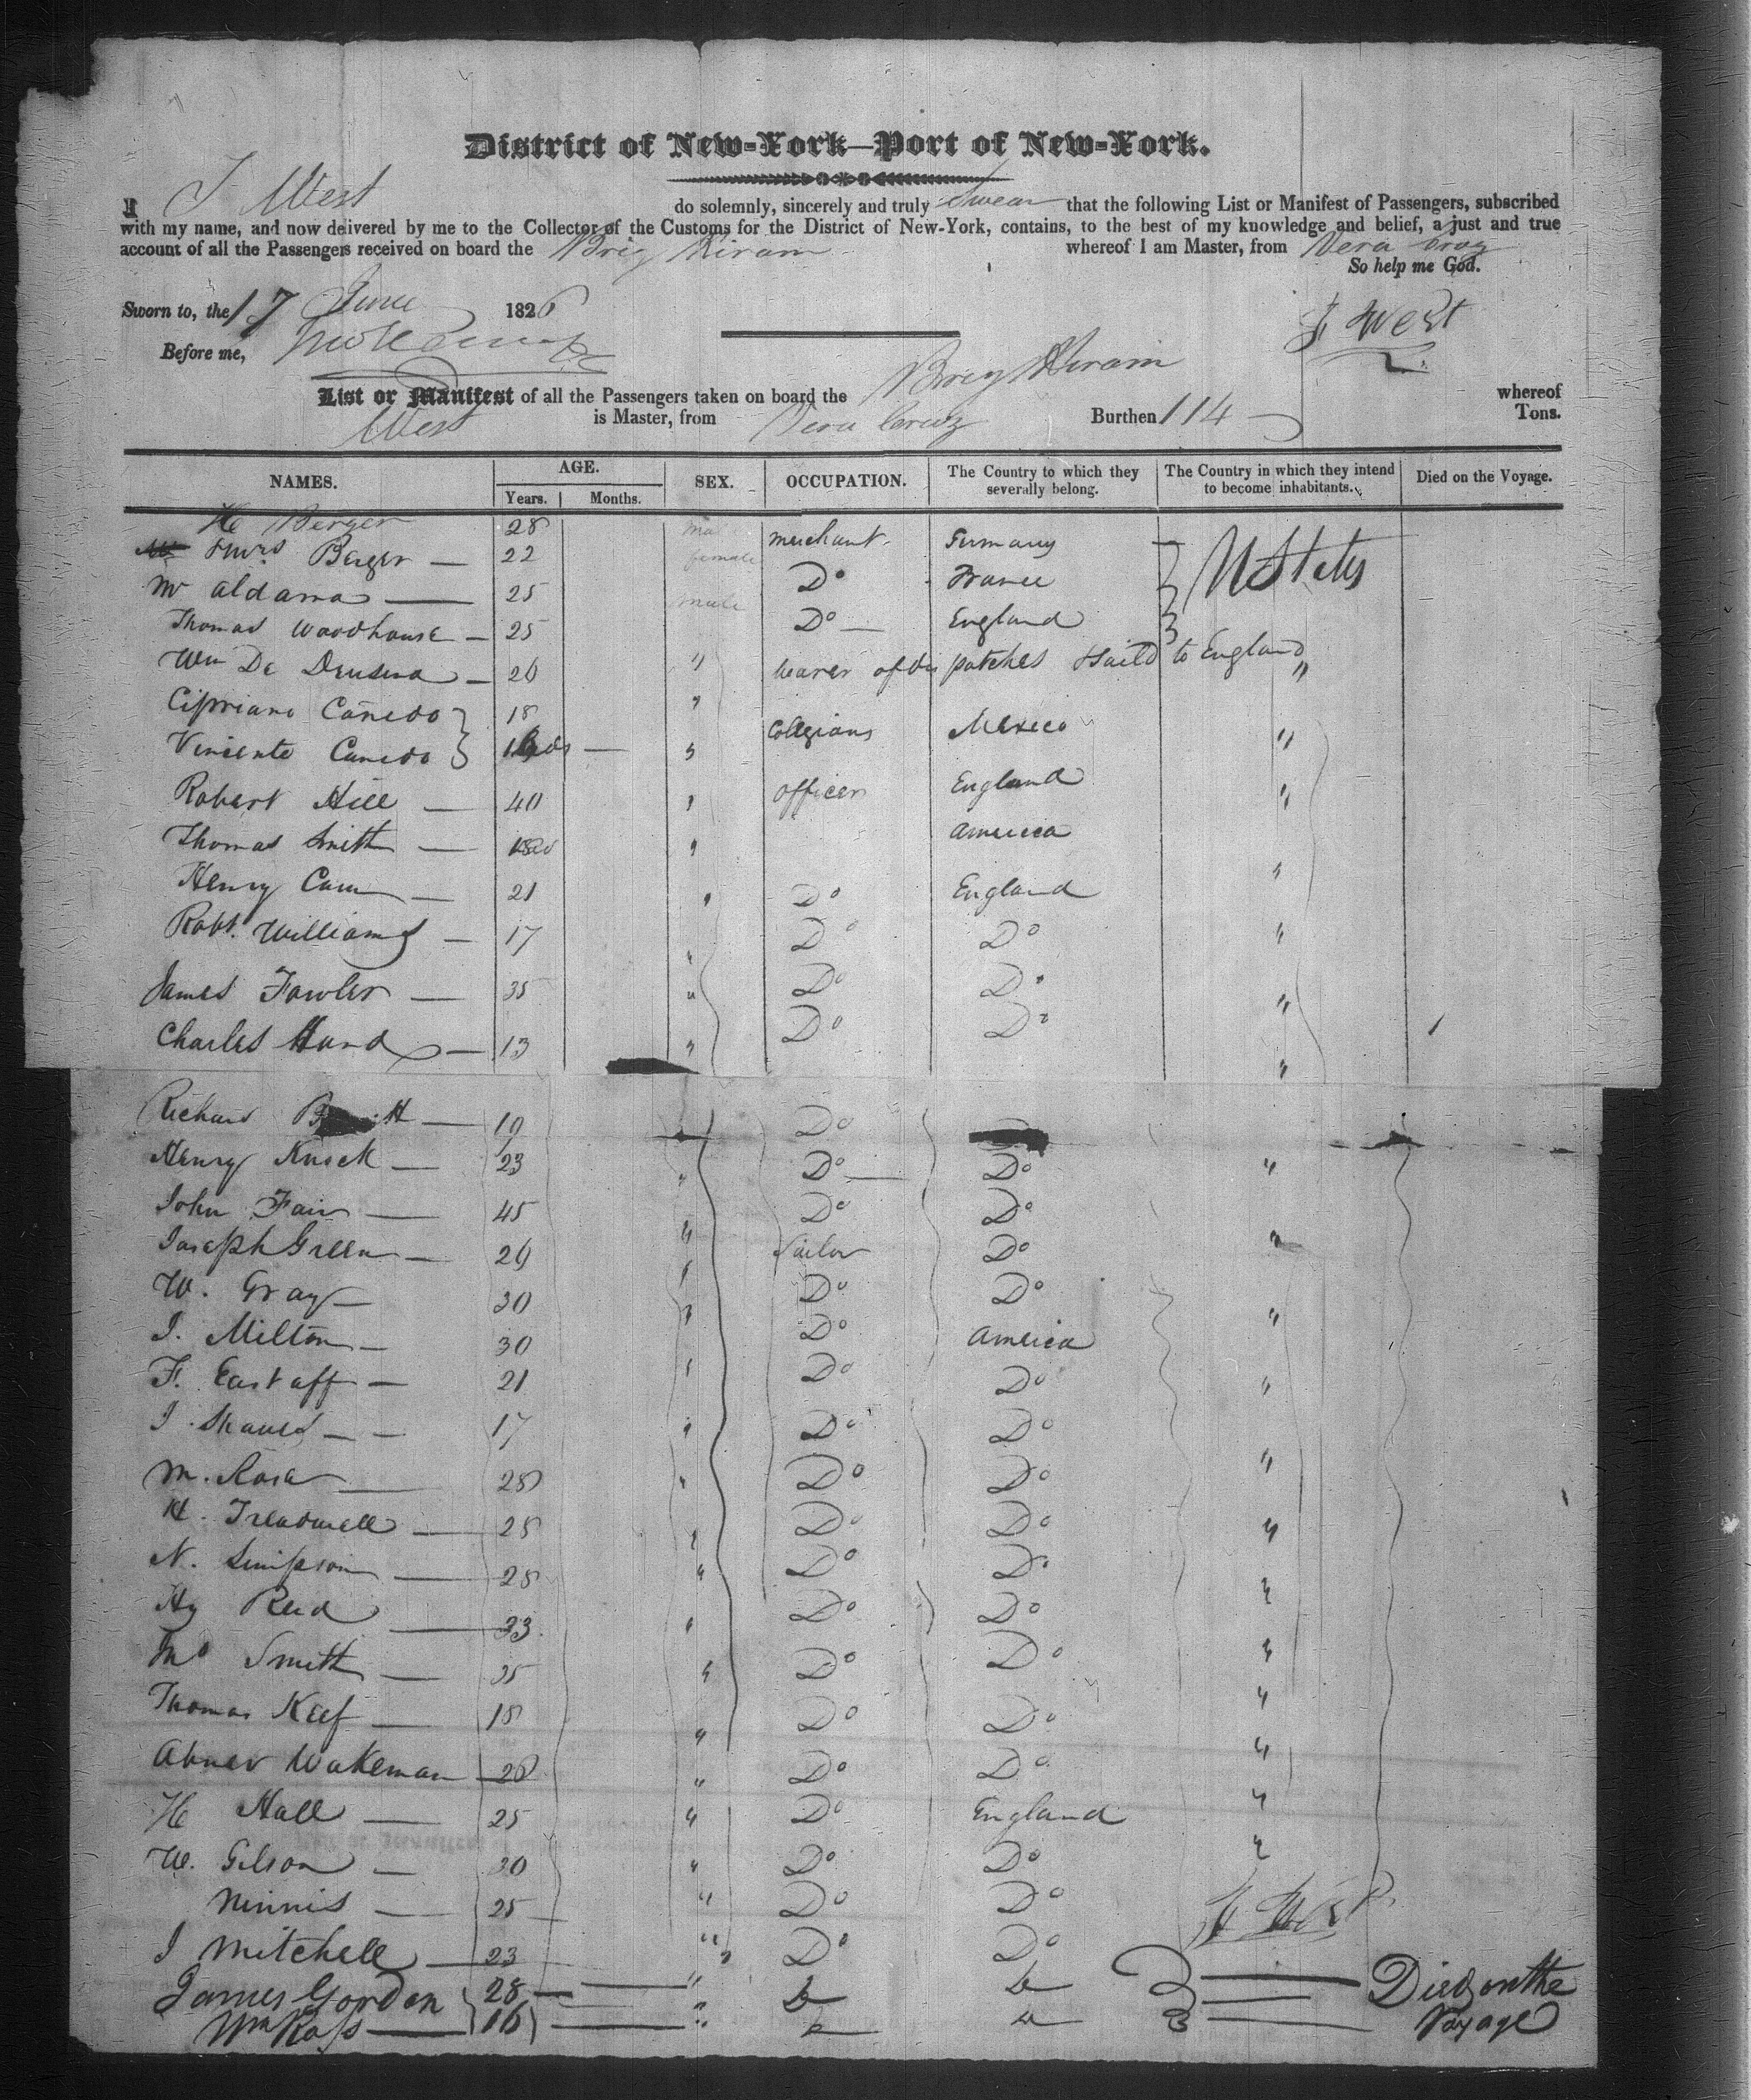 District of New-York—Port of New-York.
I J West do solemnly, sincerely and truly Swear that the following List or Manifest of Passengers, subscribed
with my name, and now deivered by me to the Collector of the Customs for the District of New-York, contains, to the best of my knowledge and belief, a just and true
account of all the Passengers received on board the Brig Hiram whereof I am Master, from Vera Cruz
So help me God.
Sworn to, the 17 June 1826
J West
Before me,
List or Manifest of all the Passengers taken on board the Brig Hiram whereof
West is Master, from Vera Cruz Burthen 114 Tons.
NAMES. AGE. SEX. OCCUPATION. The Country to which they severally belong. The Country in which they intend to become inhabitants. Died on the Voyage.
Years. Months.
H Berger 28 male merchant Germany
Mrs Berger — 22 female
U States
Mr Aldama — 25 male Do France
Thomas Woodhouse — 25 Do — England
Wm De Drusina — 20 " bearer of dispatches to England "
Cipriano Cañedo 18 "
Collegians Mexico "
Vincente Canedo "
Robert Hill — 40 " officer England "
Thomas Smith — " America "
Henry — 21 " Do England
Robt. Williams — 17 " Do Do "
James Fowler — 35 " Do Do "
Charles Hand — 13 " Do Do "
Richard — 19 Do
Henry Knock — 23 " Do — Do "
John Fair — 45 " Do Do
Joseph Green — 29 " Sailor Do "
W. Gray — 30 " Do Do "
J. Milton — 30 " Do America
F. Eastaff — 21 " Do Do "
J. — — 17 " Do Do
M. Rose — 28 " Do Do "
H. Treadwell — 25 " Do Do "
N. Simpson — 28 " Do Do "
Hy Reid — 33 " Do Do "
Smith — 35 " Do Do "
Thomas Keef — 18 " Do Do "
Abner Wakeman — 26 " Do Do "
H Hall — 25 " Do England "
W. Gilson — 30 " Do Do
Ninnis — 25 " Do Do
J West
J Mitchell — 23 " Do Do
James Gordon 28 — " Do Do — Died on the
Wm Ross — 16 — " Do Do — Voyage